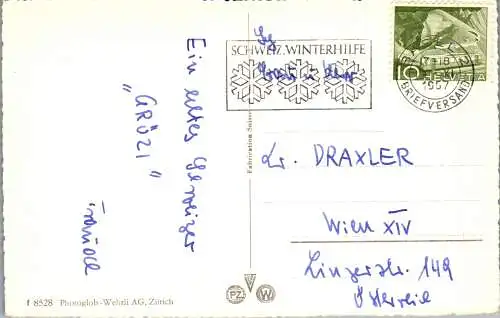 SCHWEIZ. WINTERHILFE
10 HELVETIA
1957
BRIEFVERSAND
Ein echtes Schweizer
"GRÜZI"
Traudl
Fabrication Suisse
DRAXLER
Wien XIV
Linzerstr. 149
Österreich
PZ W
f 8528 Photoglob-Wehrli AG, Zürich